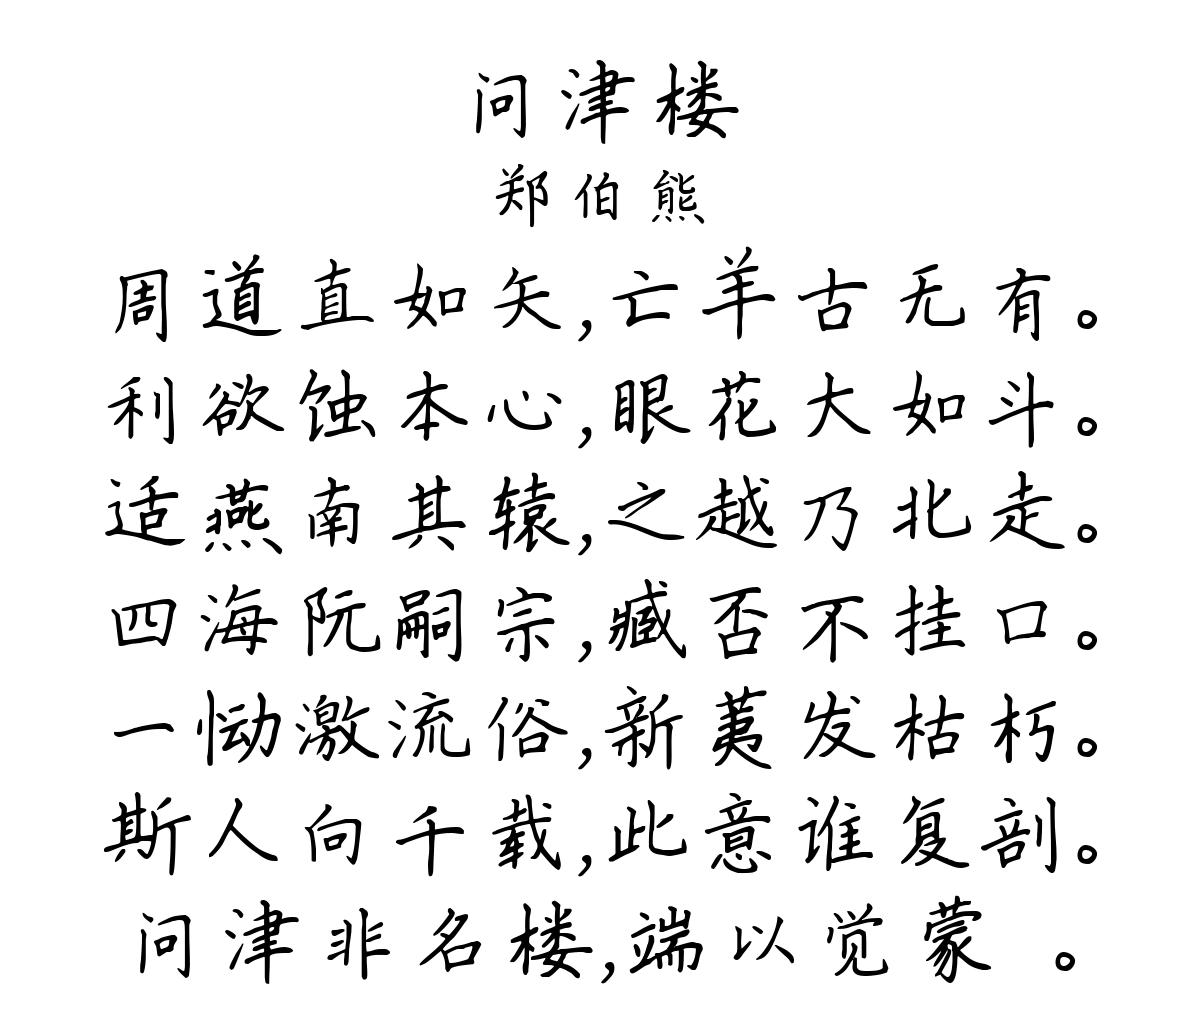 问津楼
郑伯熊
周道直如矢,亡羊古无有。
利欲蚀本心,眼花大如斗。
适燕南其辕,之越乃北走。
四海阮嗣宗,臧否不挂口。
一恸激流俗,新荑发枯朽。
斯人向千载,此意谁复剖。
问津非名楼,端以觉蒙 。